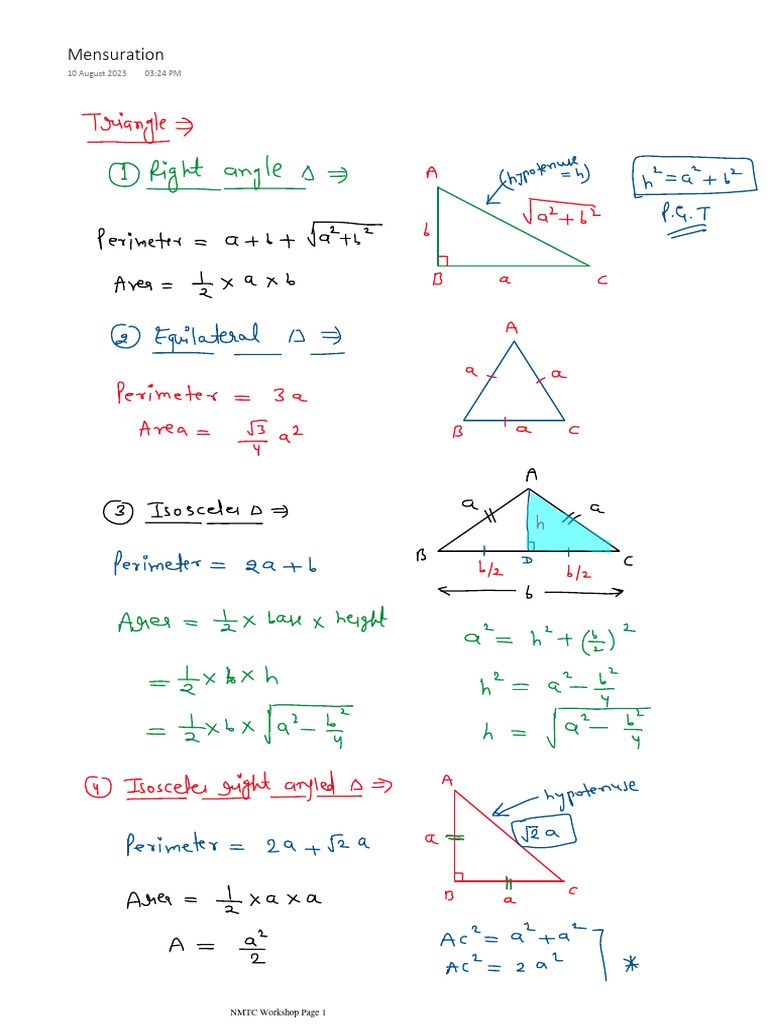 Mensuration
10 August 2023 03:24 PM
Triangle ⇒
① Right angle Δ ⇒
Perimeter = a + b + √(a² + b²)
Area = 1/2 × a × b
A
b
B
a
C
(hypotenuse = h)
√(a² + b²)
h² = a² + b²
P.G.T
② Equilateral Δ ⇒
Perimeter = 3a
Area = √3/4 a²
A
a
a
B
a
C
③ Isosceles Δ ⇒
Perimeter = 2a + b
Area = 1/2 × base × height
= 1/2 × b × h
= 1/2 × b × √(a² − b²/4)
A
a
a
h
B
D
C
b/2
b/2
b
a² = h² + (b/2)²
h² = a² − b²/4
h = √(a² − b²/4)
④ Isosceles right angled Δ ⇒
Perimeter = 2a + √2 a
Area = 1/2 × a × a
A = a²/2
A
hypotenuse
√2 a
a
B
a
C
AC² = a² + a²
AC² = 2a²
*
NMTC Workshop Page 1